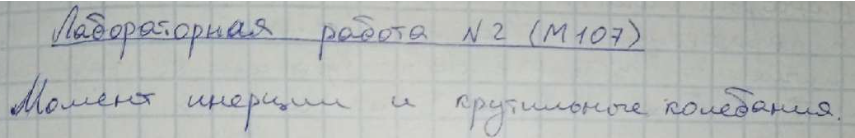 Лабораторная работа N2 (М107)
Момент инерции и крутильные колебания.